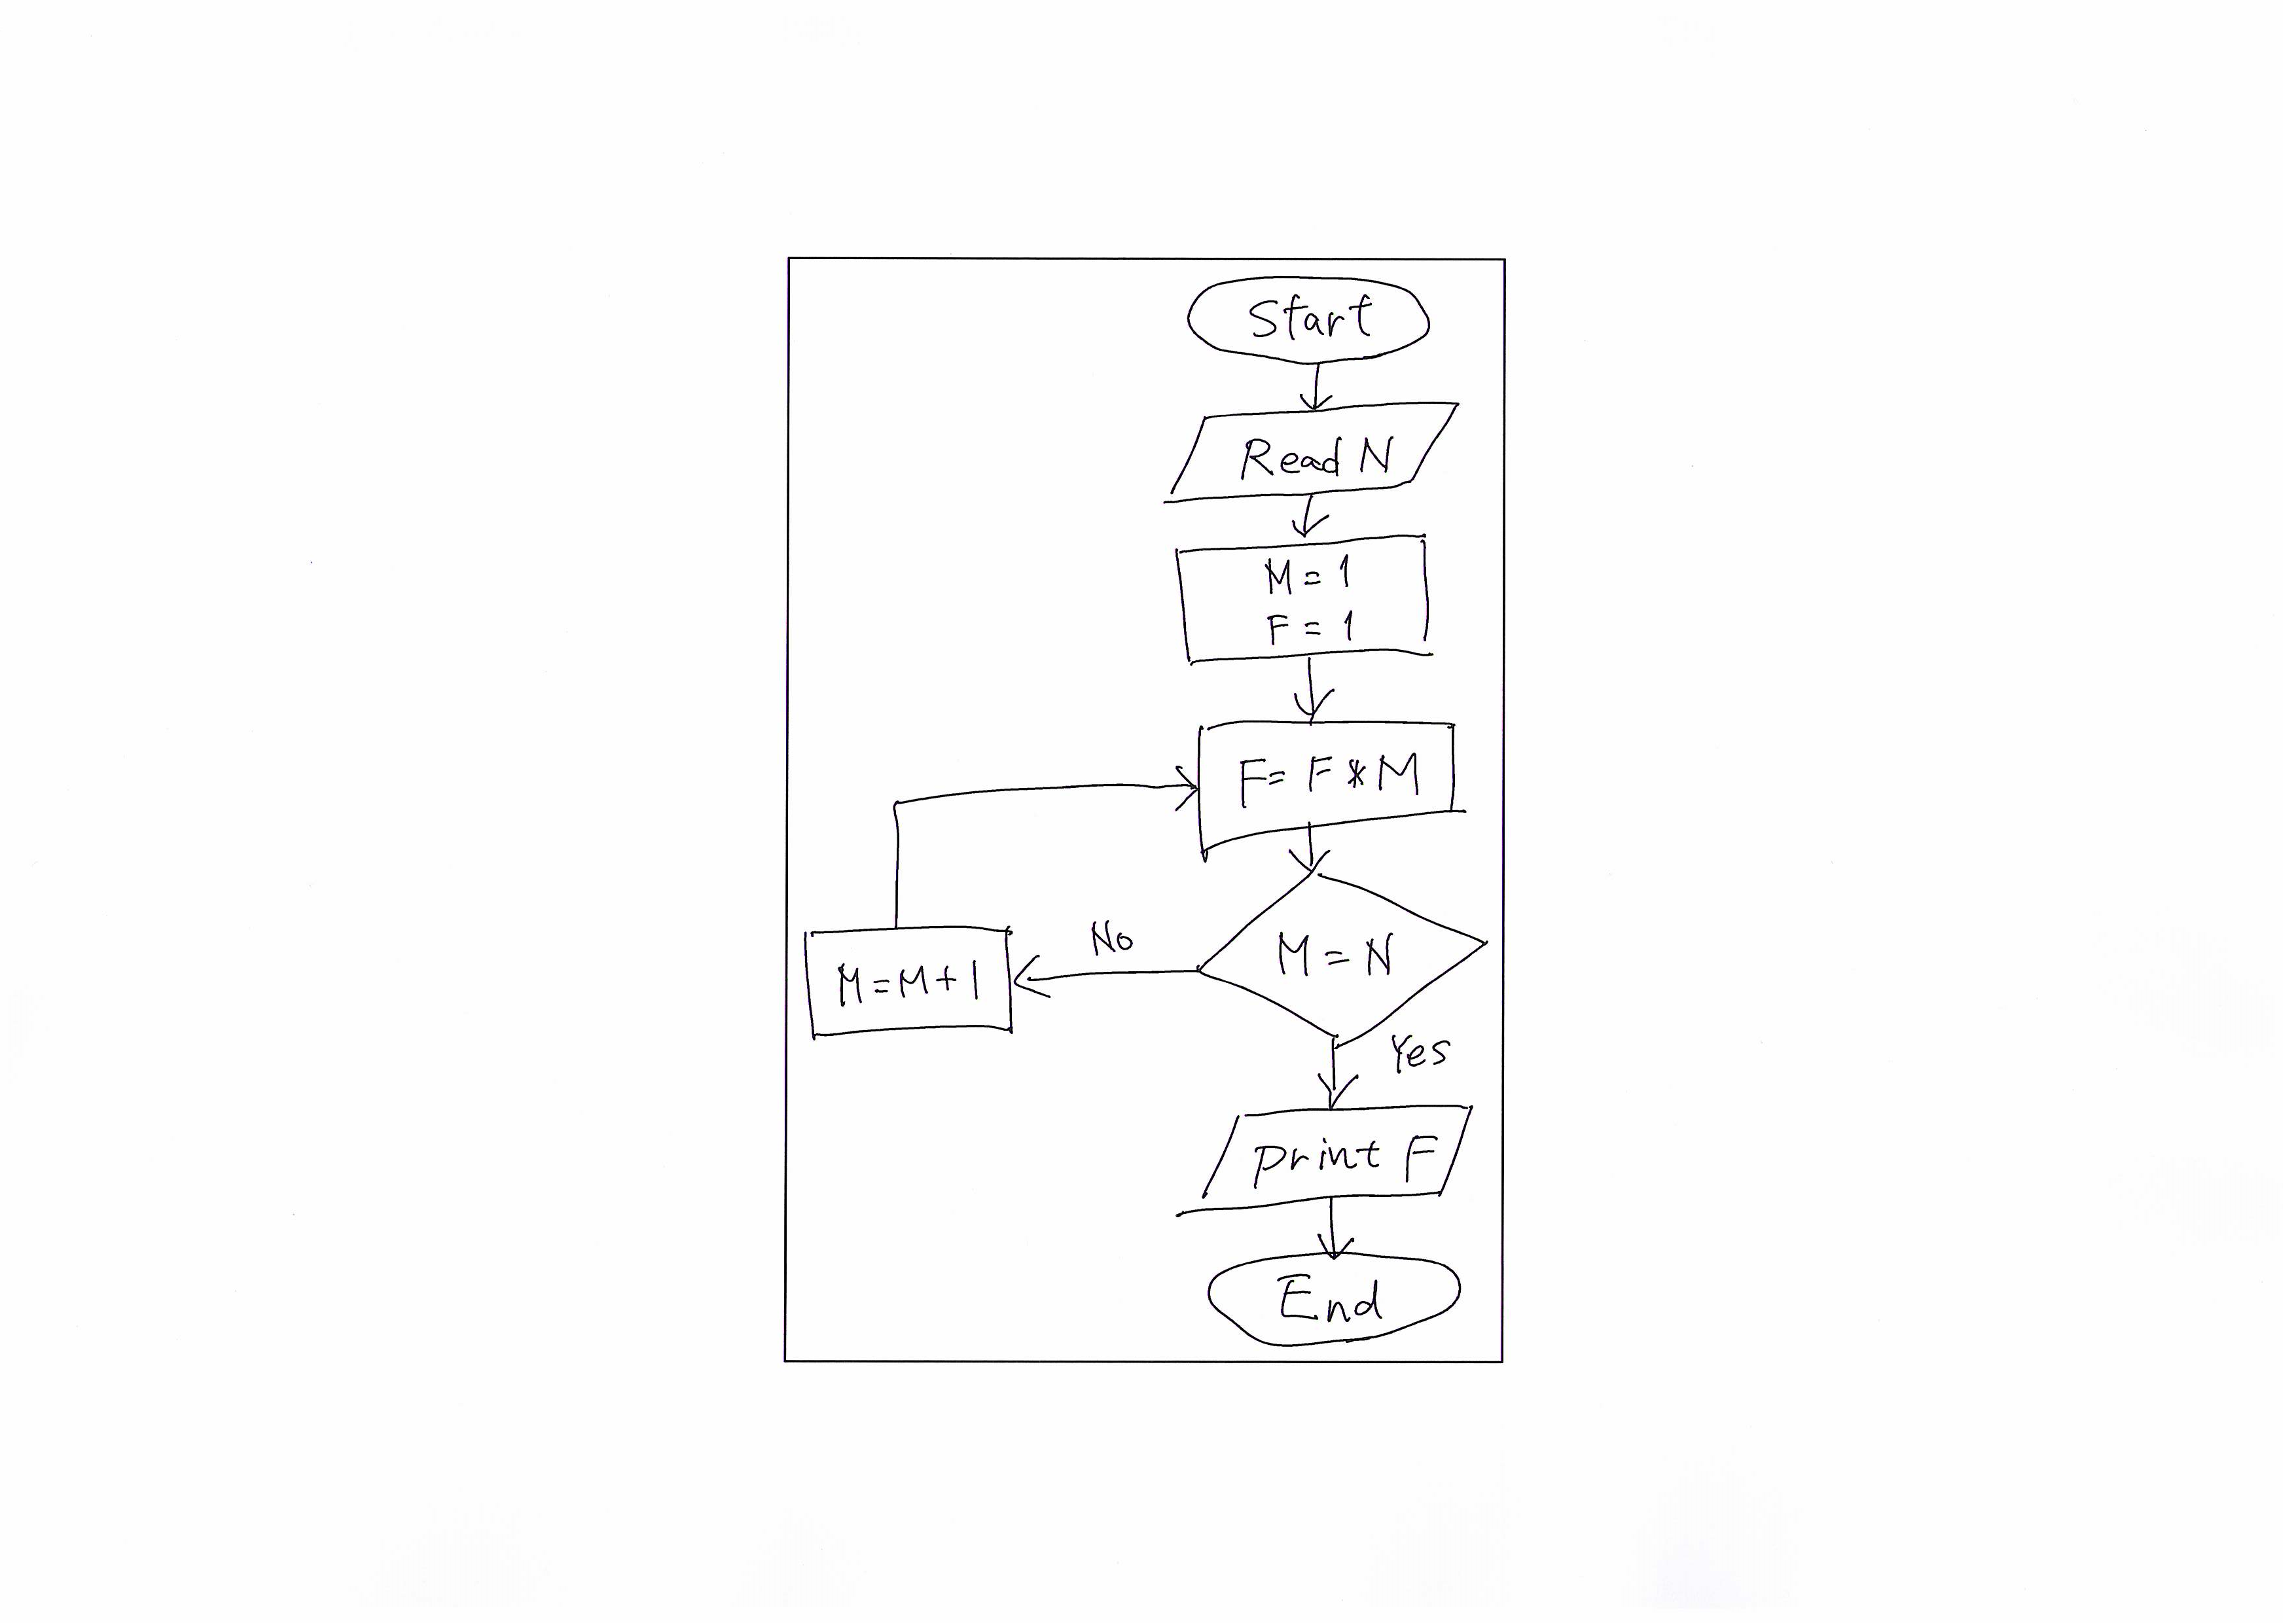 Start
Read N
M = 1
F = 1
F = F * M
M = N
No
M = M + 1
Yes
print F
End